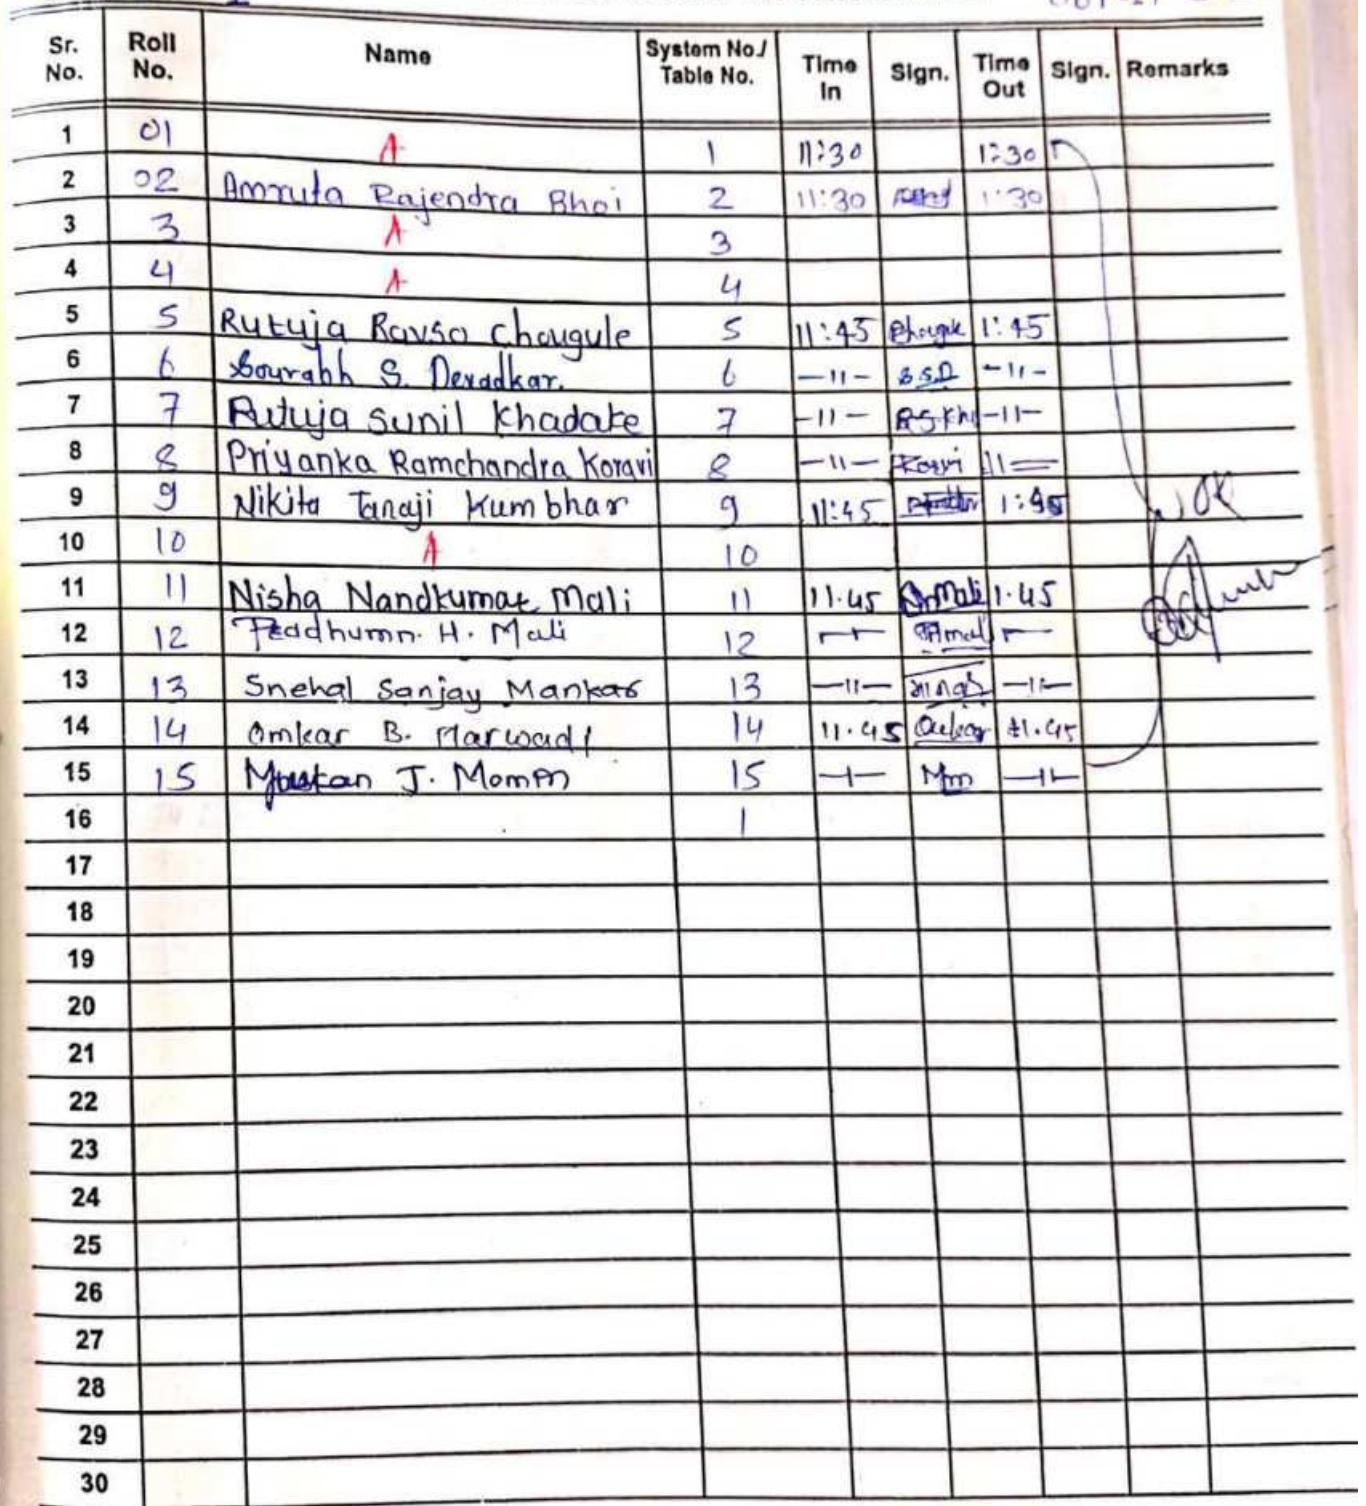 Sr. No. Roll No. Name System No./ Table No. Time In Sign. Time Out Sign. Remarks
1 01 A 1 11:30 1:30
2 02 Amruta Rajendra Bhoi 2 11:30 1:30
3 3 A 3
4 4 A 4
5 5 Rutuja Ravso Chougule 5 11:45 Chougule 1:45
6 6 Sourabh S. Devadkar. 6 -11- S.S.D -11-
7 7 Rutuja Sunil Khadake 7 -11- R.S.Kh -11-
8 8 Priyanka Ramchandra Koravi 8 -11- Koravi 11
9 9 Nikita Tanaji Kumbhar 9 11:45 1:45
10 10 A 10
11 11 Nisha Nandkumar Mali 11 11.45 Mali 1.45
12 12 Pradhumn. H. Mali 12
13 13 Snehal Sanjay Mankar 13 -11- -11-
14 14 Omkar B. Marwadi 14 11.45 Omkar 1.45
15 15 Muskan J. Momin 15 Mm
16 1
17
18
19
20
21
22
23
24
25
26
27
28
29
30
OK